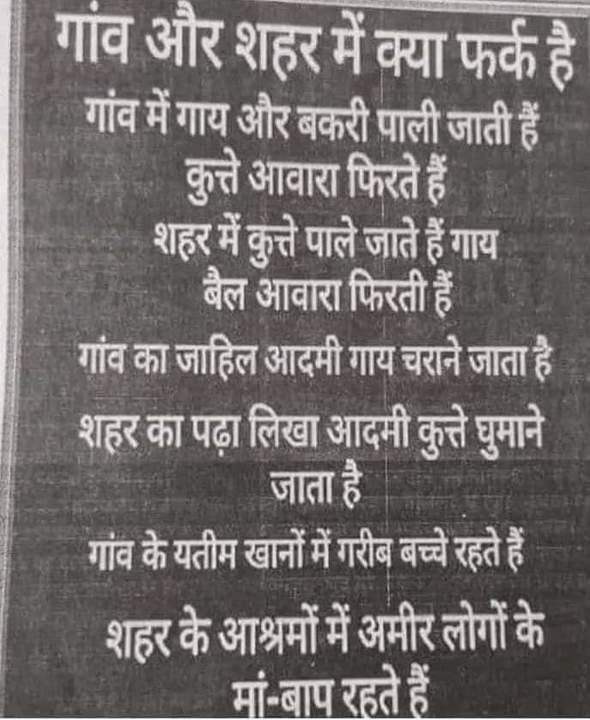 गांव और शहर में क्या फर्क है
गांव में गाय और बकरी पाली जाती हैं
कुत्ते आवारा फिरते हैं
शहर में कुत्ते पाले जाते हैं गाय
बैल आवारा फिरती हैं
गांव का जाहिल आदमी गाय चराने जाता है
शहर का पढ़ा लिखा आदमी कुत्ते घुमाने
जाता है
गांव के यतीम खानों में गरीब बच्चे रहते हैं
शहर के आश्रमों में अमीर लोगों के
मां-बाप रहते हैं